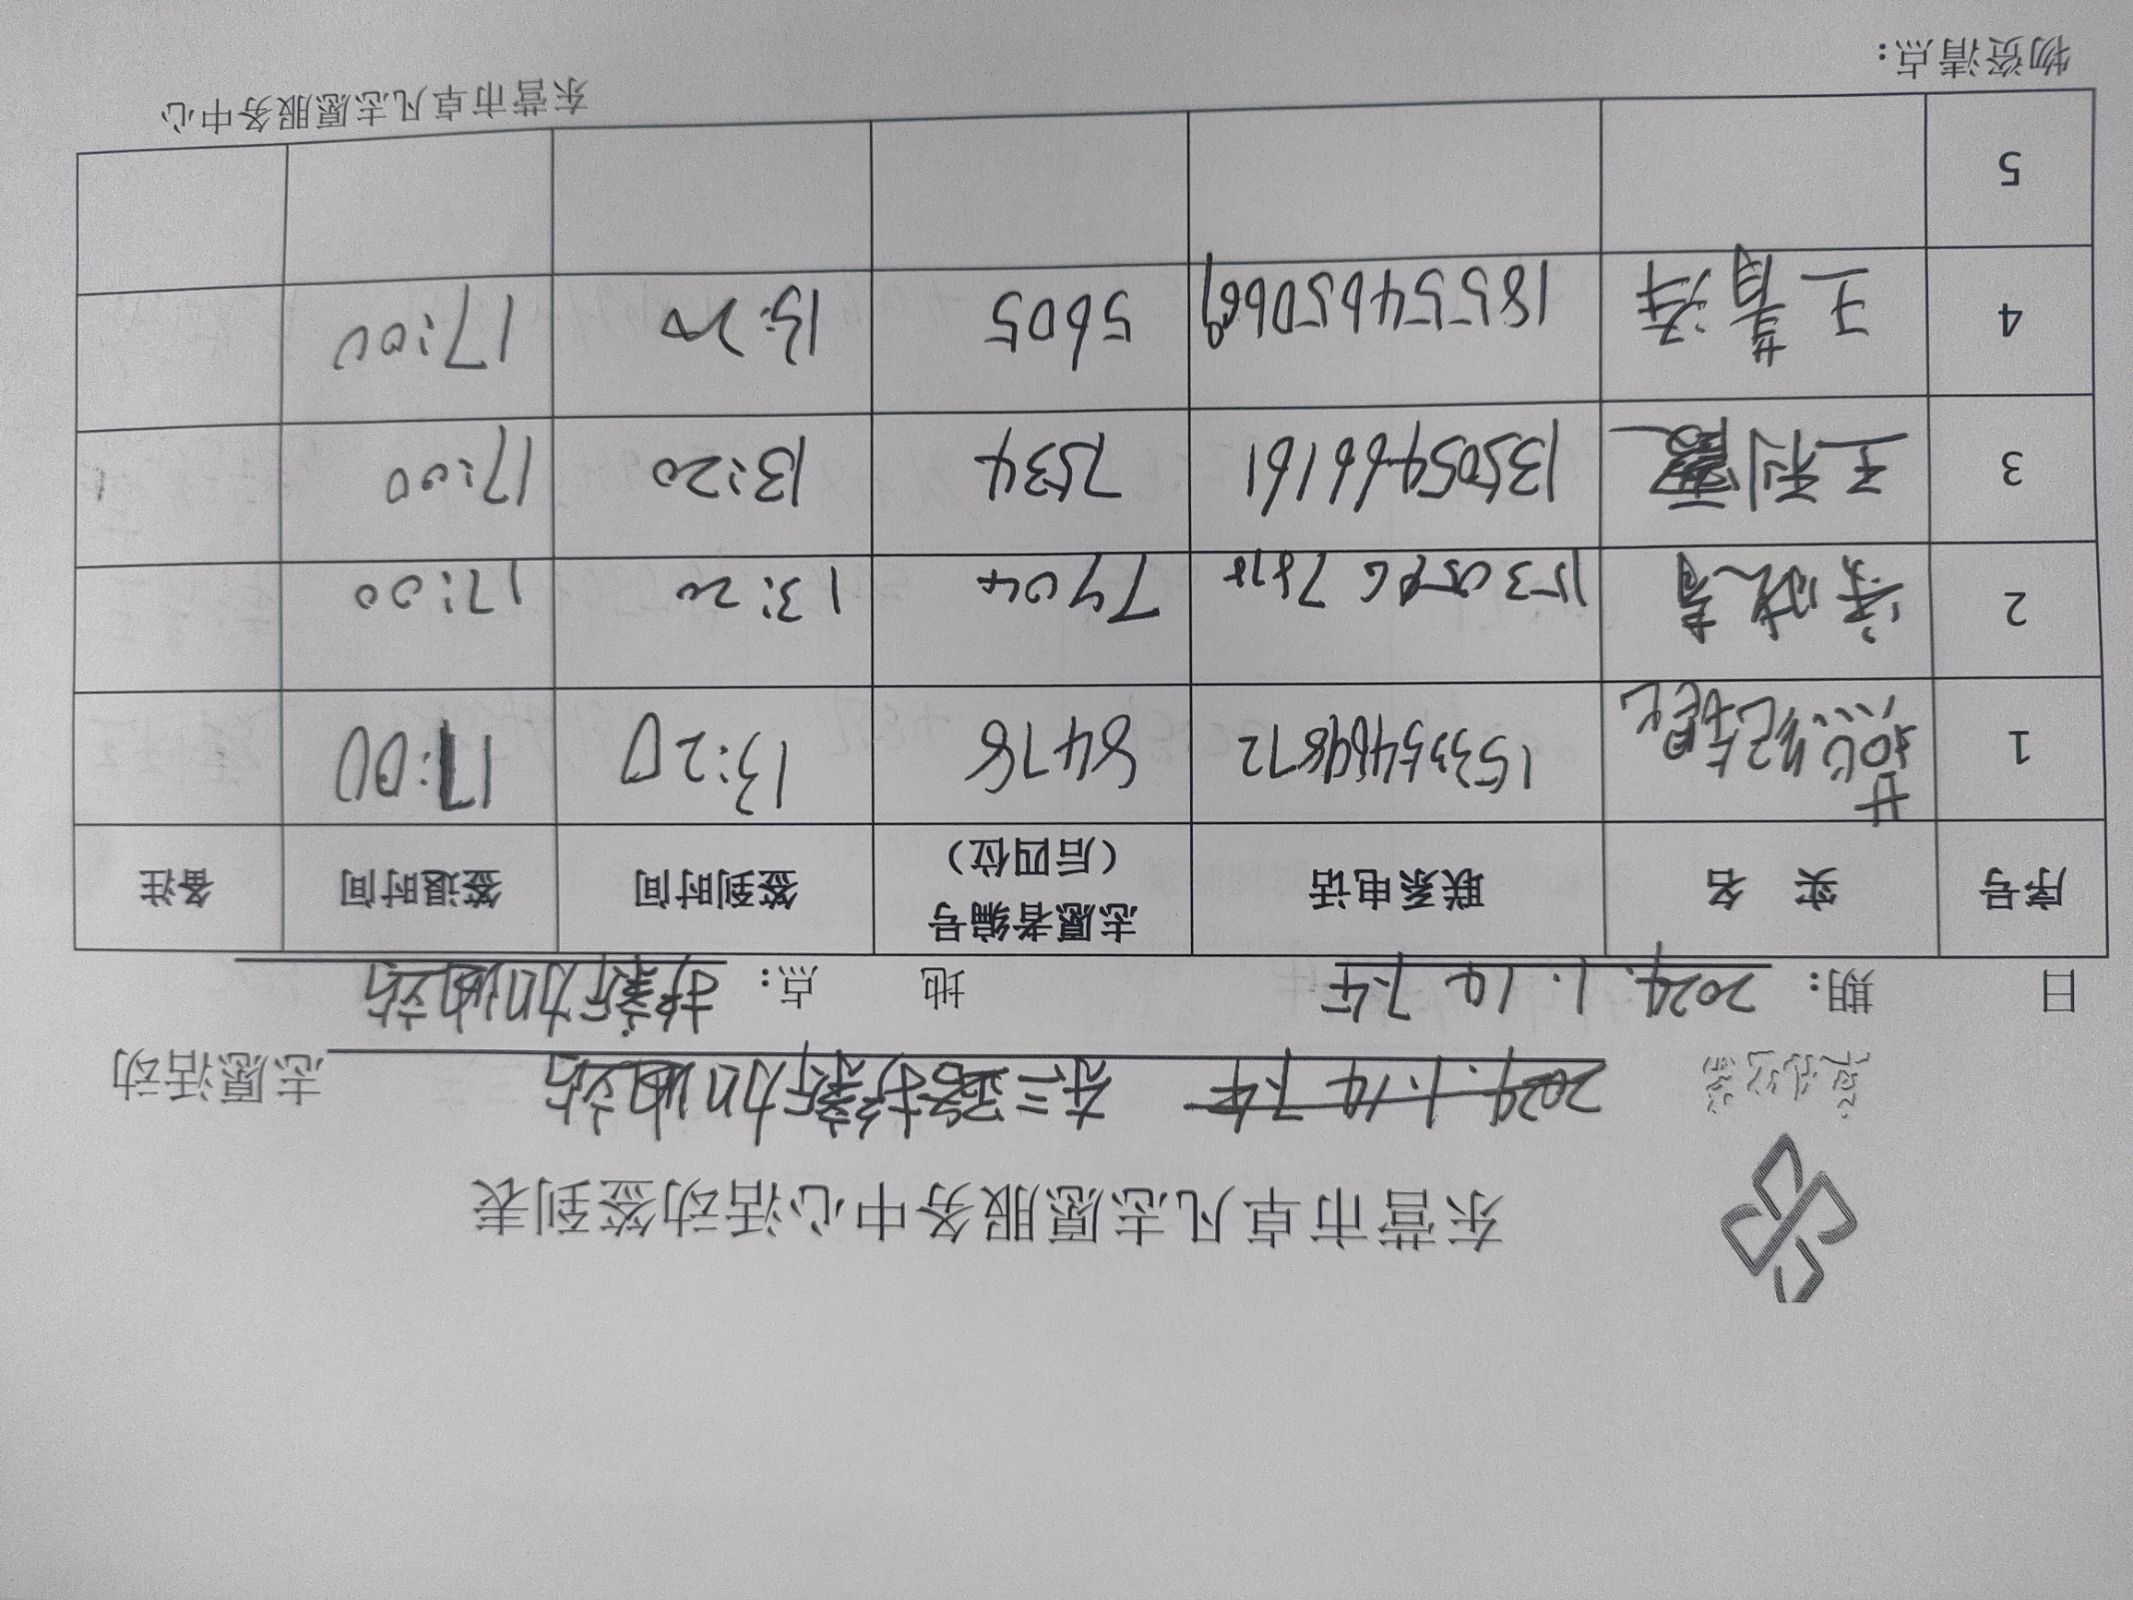 东营市卓凡志愿服务中心活动签到表
2024.1.14 下午 东三路 加油站 志愿活动
日 期：2024.1.14 下午 地 点： 加油站
序号 实 名 联系电话 志愿者编号（后四位） 签到时间 签退时间 备注
1 8478 13:20 17:00
2 7904 13:20 17:00
3 王利霞 13505466161 7534 13:20 17:00
4 王菁泽 5605 13:20 17:00
5
物资清点：
东营市卓凡志愿服务中心